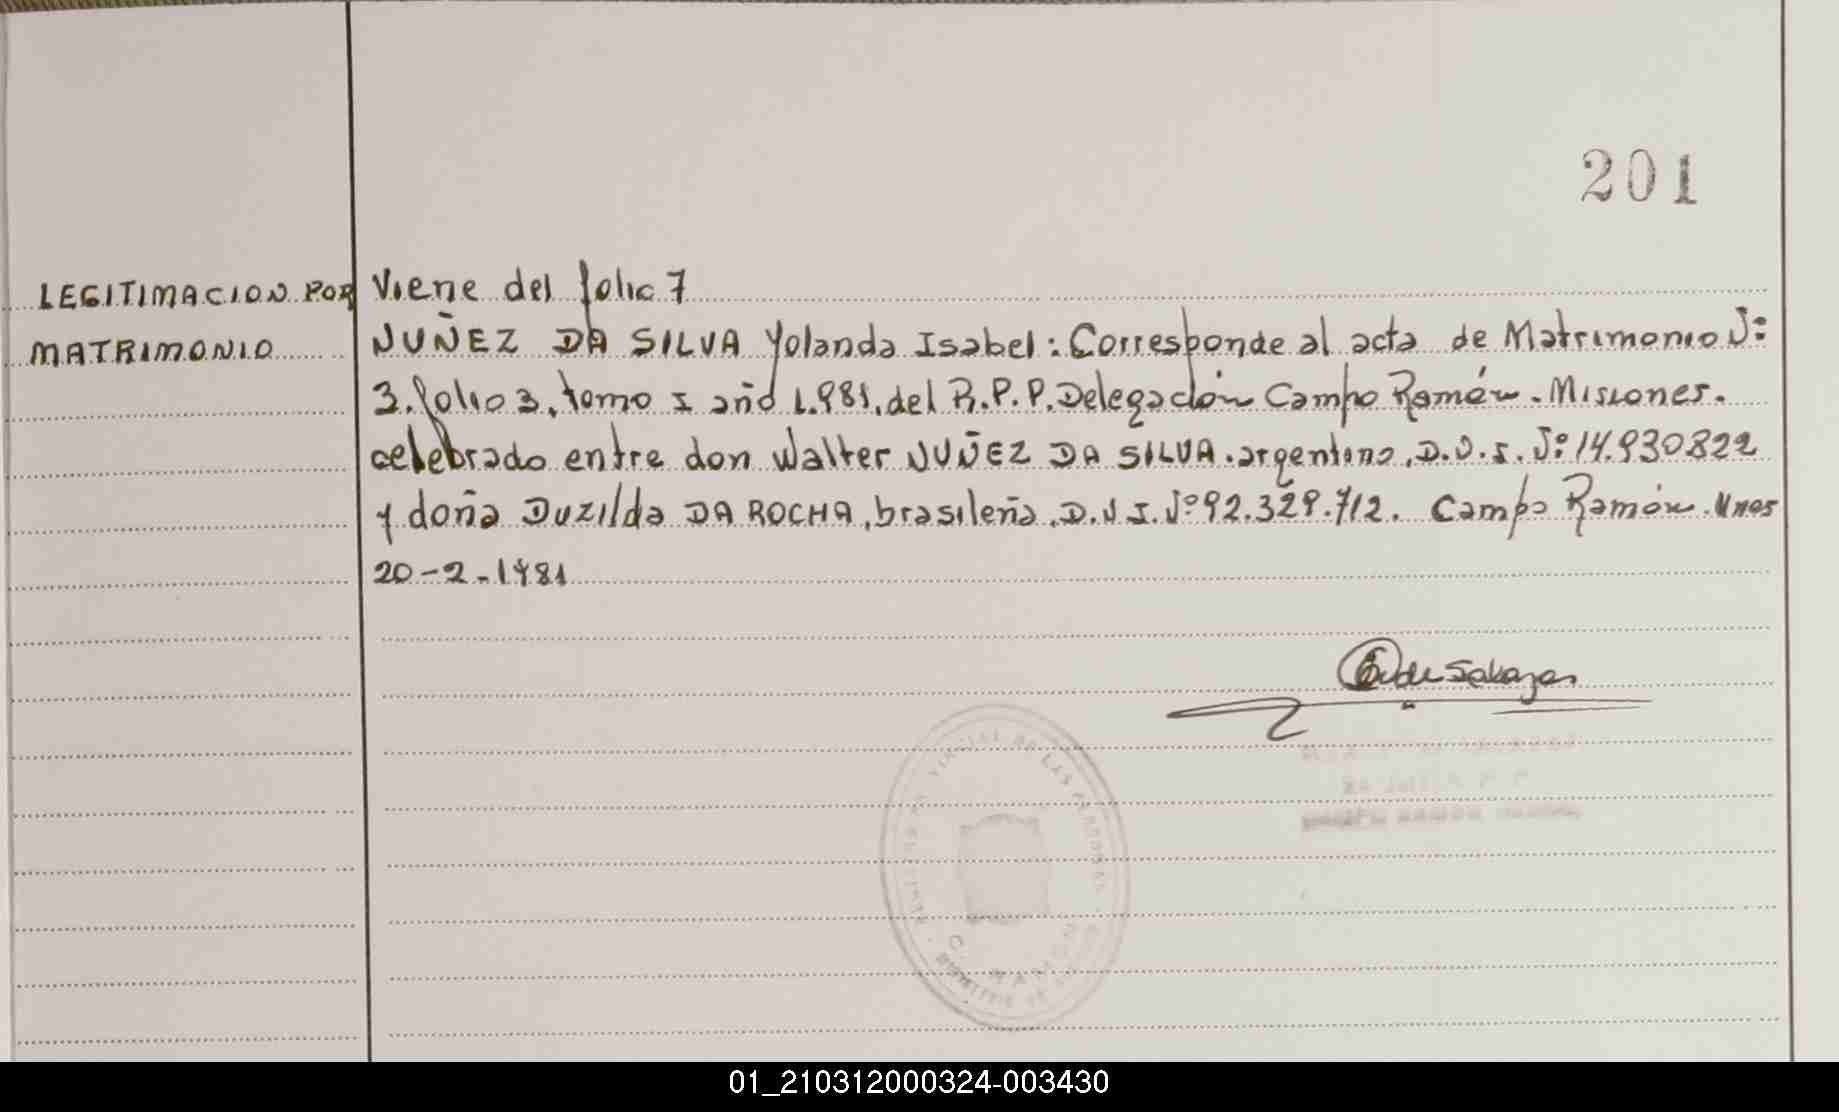 201
LEGITIMACION POR
MATRIMONIO
Viene del folio 7
NUÑEZ DA SILVA Yolanda Isabel: Corresponde al acta de Matrimonio Nº
3. folio 3, tomo I año 1.981, del R.P.P. Delegación Campo Ramón. Misiones.
celebrado entre don Walter NUÑEZ DA SILVA. argentino, D.N.I. Nº 14.930822
y doña Duzilda DA ROCHA, brasileña, D.N.I. Nº 92.329.712. Campo Ramón. Mnes
20-2-1981
DE LAS PERSONAS
01_210312000324-003430